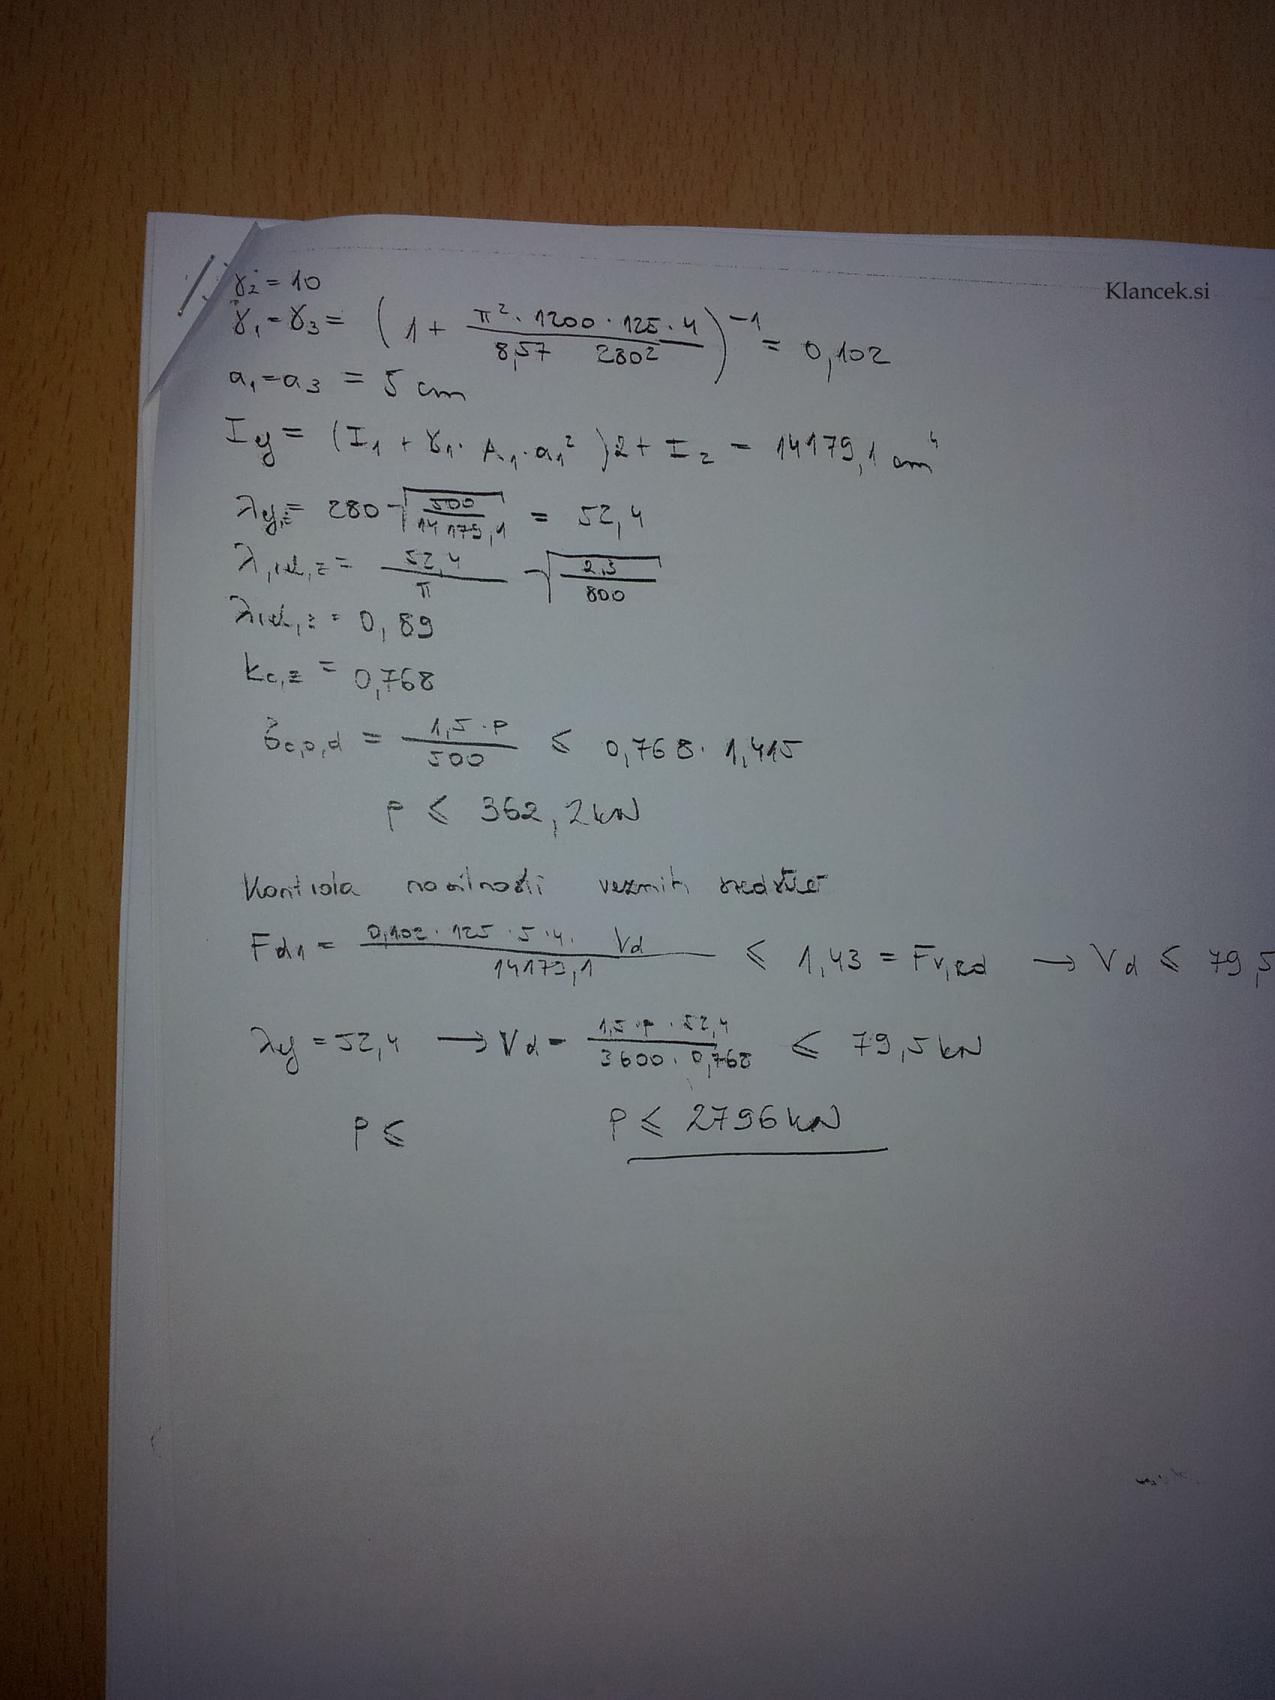 γ₂ = 10
Klancek.si
γ₁ = γ₃ = (1 + π² · 1200 · 125 · 4 / 8,57 280²)⁻¹ = 0,102
a₁ = a₃ = 5 cm
Iy = (I₁ + γ₁ · A₁ · a₁²)2 + I₂ = 14179,1 cm⁴
λy,z = 280 √(500 / 14179,1) = 52,4
λ,rel,z = 52,4 / π √(2,3 / 800)
λrel,z = 0,89
kc,z = 0,768
σc,0,d = 1,5 · P / 500 ≤ 0,768 · 1,415
P ≤ 362,2 kN
Kontrola nosilnosti veznih sredstev
Fd1 = 0,102 · 125 · 5 · 4 · Vd / 14179,1 ≤ 1,43 = Fv,Rd → Vd ≤ 79,5
λy = 52,4 → Vd = 1,5 · P · 52,4 / 3600 · 0,768 ≤ 79,5 kN
P ≤ P ≤ 2796 kN